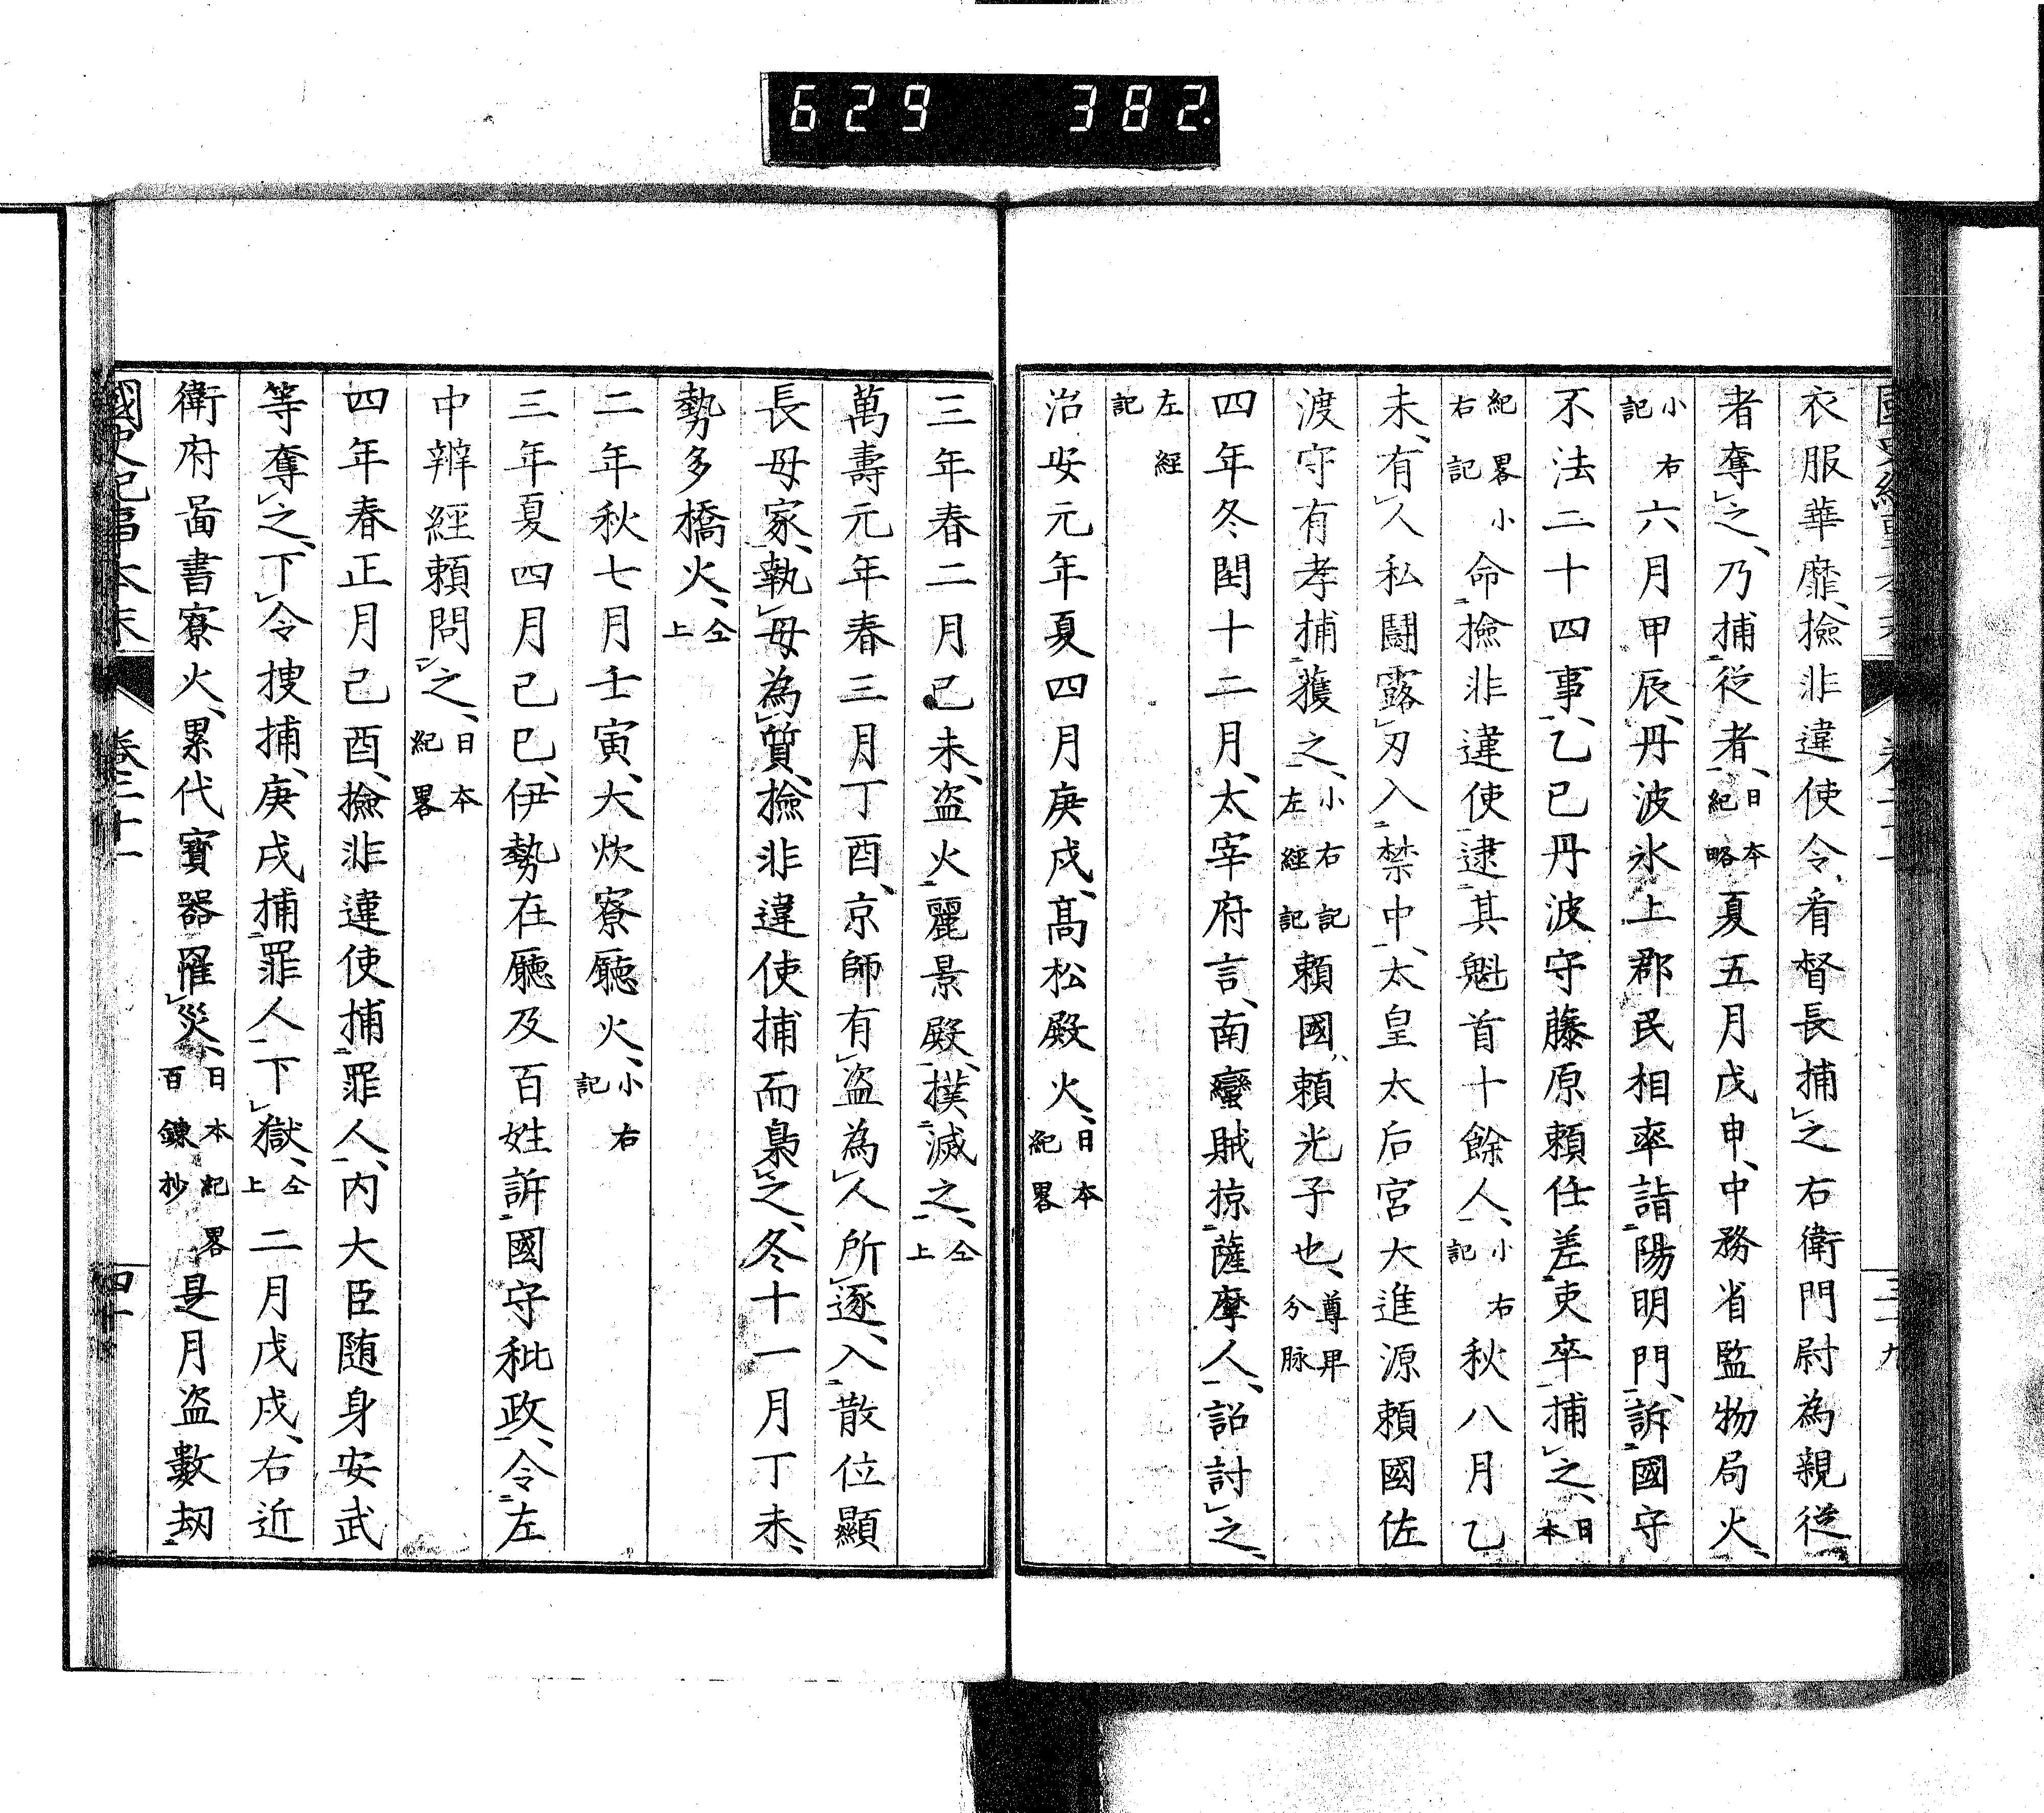 629 382.
衣服華靡、撿非違使令、看督長捕之右衛門尉為親從
者奪之、乃捕從者、日本紀略夏五月戊申、中務省監物局火、
小右記六月甲辰、丹波氷上郡民相率詣陽明門、訴國守
不法二十四事、乙巳丹波守藤原頼任差吏卒捕之、日本
紀畧小右記命撿非違使逮其魁首十餘人、小右記秋八月乙
未、有人私闘露刃入禁中、太皇太后宮大進源頼國佐
渡守有孝捕獲之、小右記左經記頼國、頼光子也、尊卑分脉
四年冬閏十二月、太宰府言、南蠻賊掠薩摩人、詔討之、
左經記
治安元年夏四月庚戌、髙松殿火、日本紀畧
三年春二月己未、盗火麗景殿、撲滅之、仝上
萬壽元年春三月丁酉、京師有盗為人所逐、入散位顯
長母家、執母為質、撿非違使捕而梟之、冬十一月丁未、
勢多橋火、仝上
二年秋七月壬寅、大炊寮廳火、小右記
三年夏四月己巳、伊勢在廳及百姓訴國守秕政、令左
中辨經頼問之、日本紀畧
四年春正月己酉、撿非違使捕罪人、内大臣随身安武
等奪之、下令捜捕、庚戌捕罪人下獄、仝上二月戊戌、右近
衛府啚書寮火、累代寶器罹災、日本紀畧百錬抄是月盗數刼
國史紀事本末 卷三十一 四十